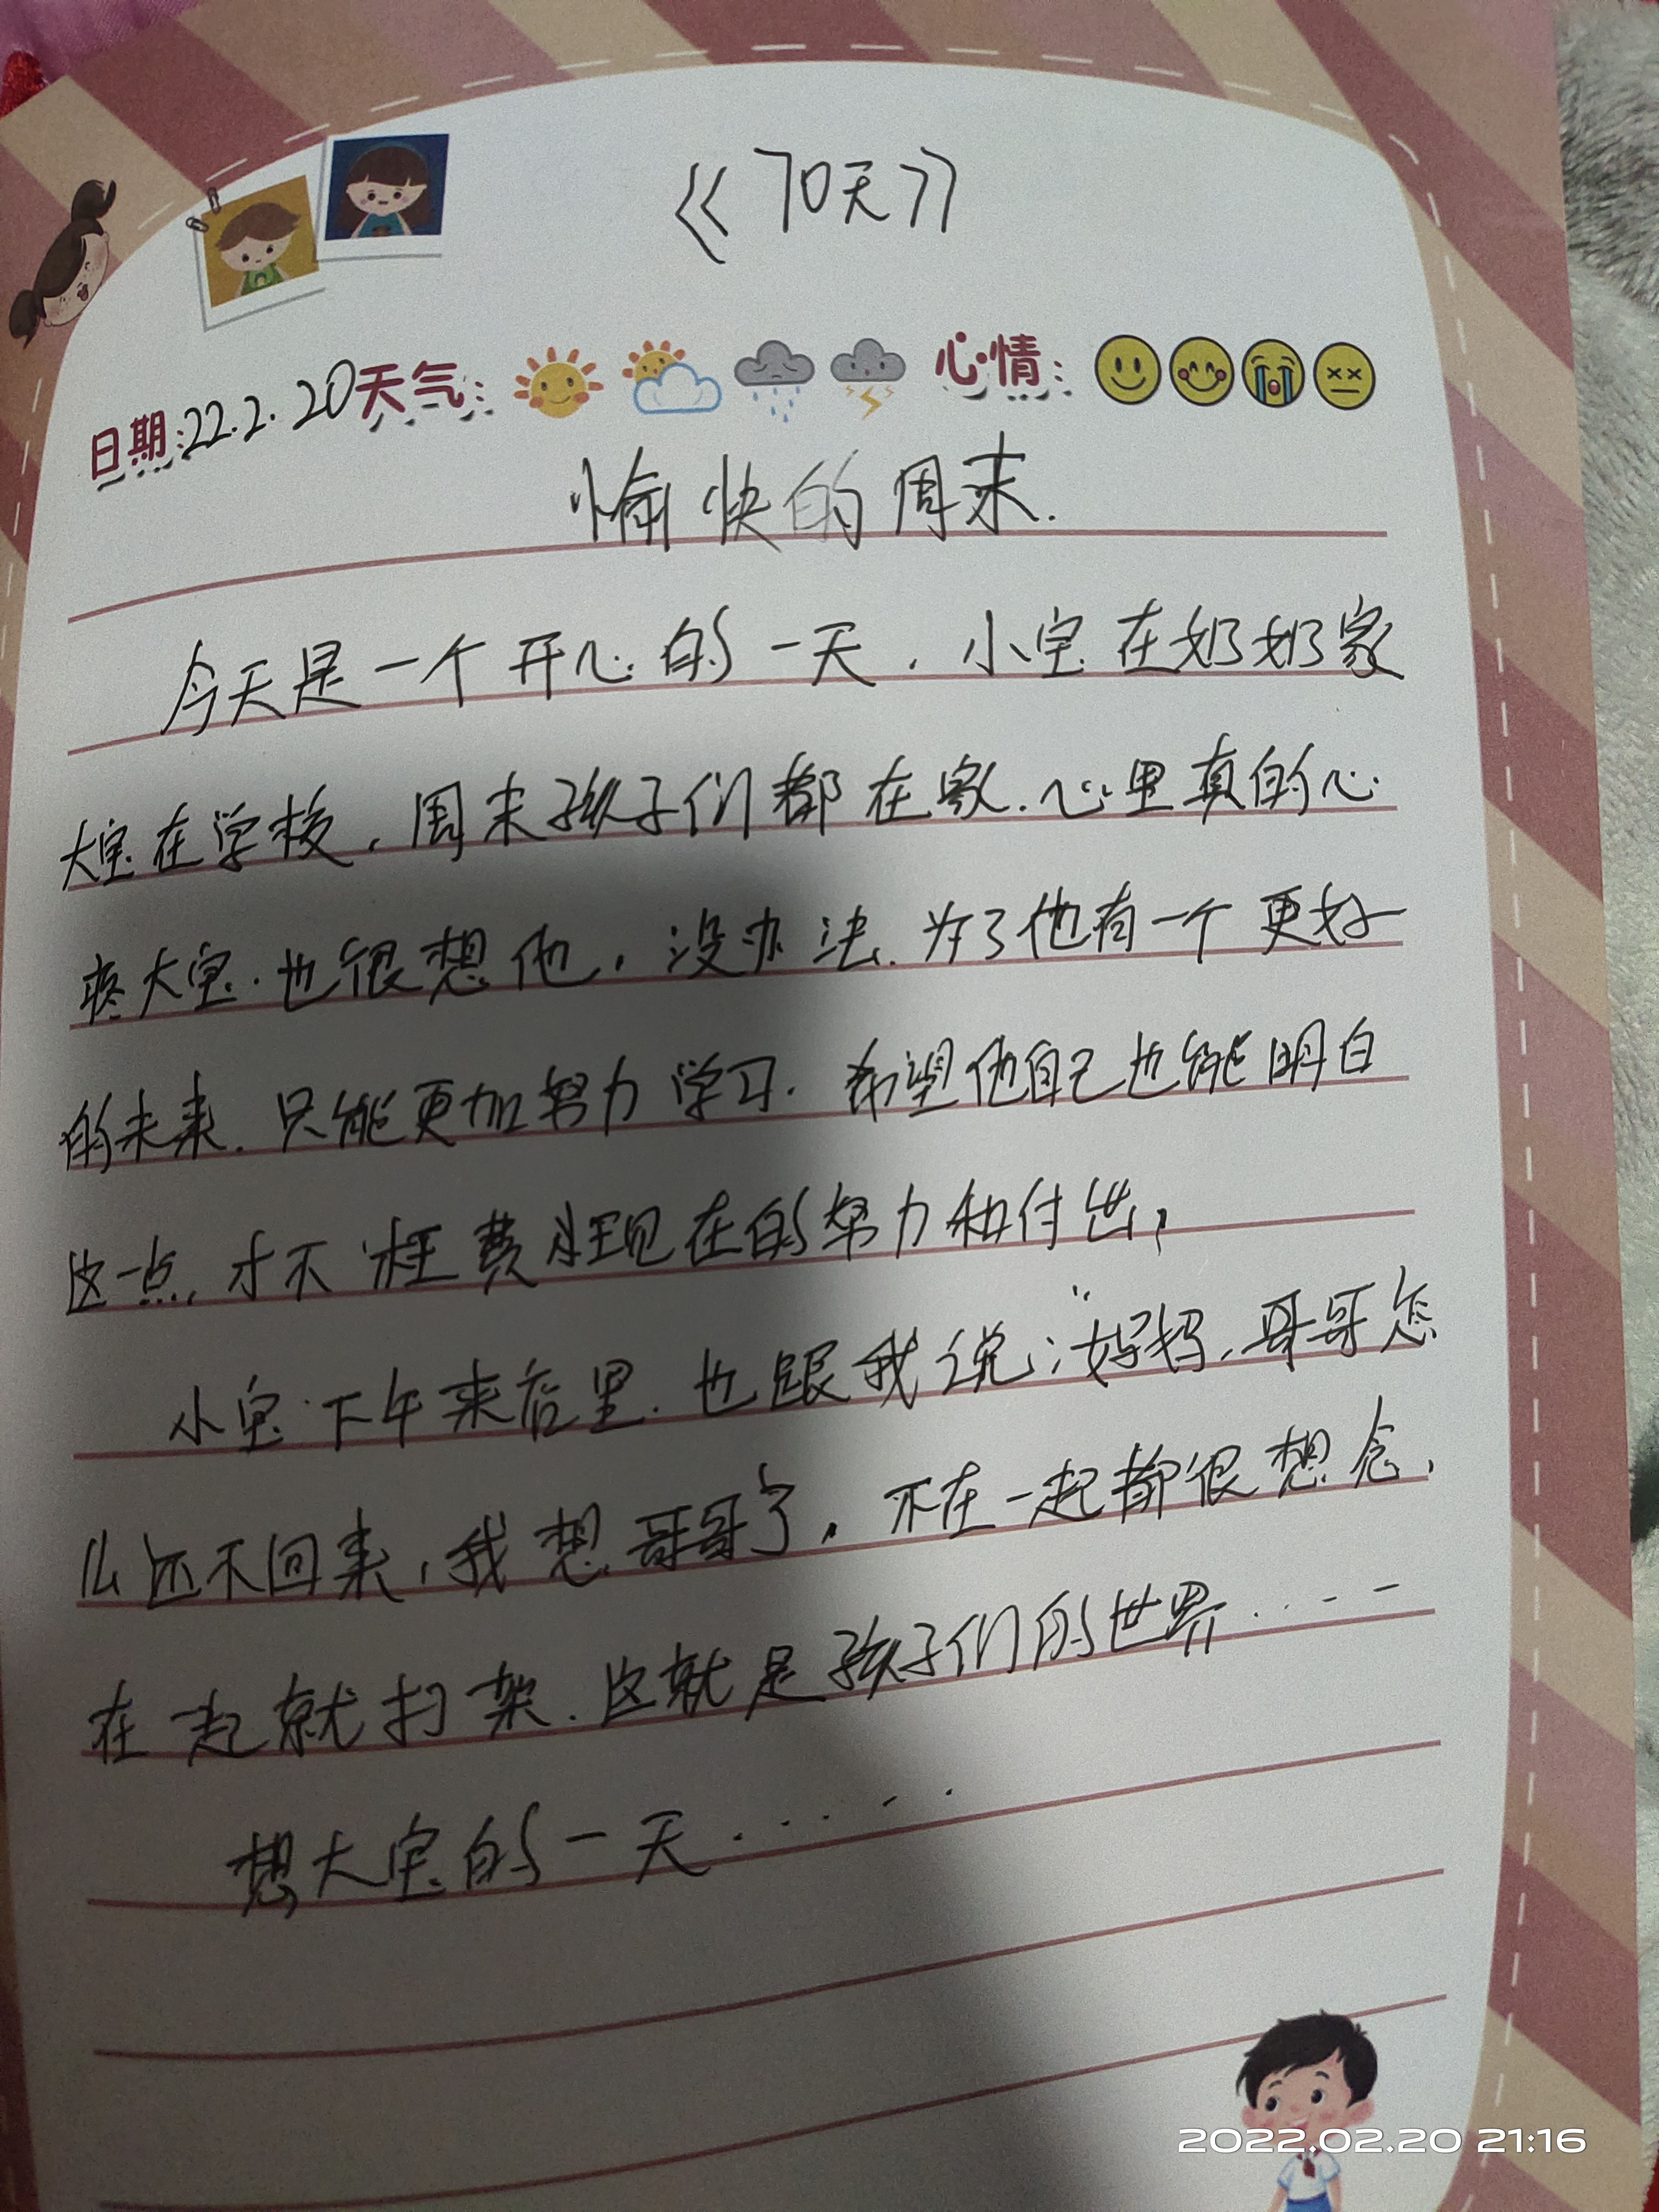 《70天》
日期:22.2.20天气: 心情:
愉快的周末.
今天是一个开心的一天.小宝在奶奶家
大宝在学校.周末孩子们都在家.心里真的心
疼大宝.也很想他.没办法.为了他有一个更好
的未来.只能更加努力学习.希望他自己也能明白
这一点.才不枉费现在的努力和付出,
小宝下午来店里.也跟我说:"妈妈.哥哥怎
么还不回来,我想哥哥了.不在一起都很想念、
在一起就打架.这就是孩子们的世界......
想大宝的一天......
2022.02.20 21:16